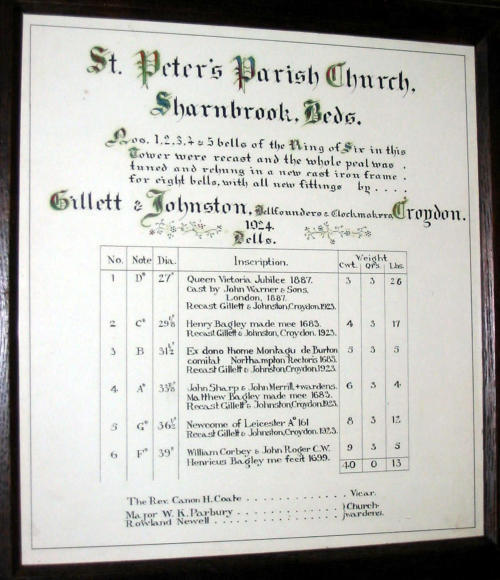 St. Peter's Parish Church,
Sharnbrook, Beds.
Nos. 1, 2, 3, 4 & 5 bells of the Ring of Six in this
Tower were recast and the whole peal was
tuned and rehung in a new cast iron frame
for eight bells, with all new fittings by . . . .
Gillett & Johnston, Bellfounders & Clockmakers, Croydon.
1924.
Bells.
No. Note Dia. Inscription. Weight
Cwt. Qrs. Lbs.
1 D# 27" Queen Victoria Jubilee 1887. 3 3 26
Cast by John Warner & Sons,
London, 1887.
Recast Gillett & Johnston, Croydon, 1923.
2 C# Henry Bagley made mee 1683. 4 3 17
Recast Gillett & Johnston, Croydon, 1923.
3 B 31½" Ex dono thome Montagu de Burton 5 3 5
comitat Northampton Rectoris 1683.
Recast Gillett & Johnston, Croydon, 1923.
4 A# John Sharp & John Merrill, + wardens. 6 3 4
Matthew Bagley made mee 1683.
Recast Gillett & Johnston, Croydon, 1923.
5 G# 36½" Newcome of Leicester A° 161 8 3 12
Recast Gillett & Johnston, Croydon, 1923.
6 F# 39" William Corbey & John Roger C.W. 9 3 5
Henricus Bagley me fecit 1699.
40 0 13
The Rev. Canon H. Coate . . . . . . . . . . . . Vicar.
Major W. K. Parbury . . . . . . . . . . . . } Church-
Rowland Newell . . . . . . . . . . . . . . . wardens.